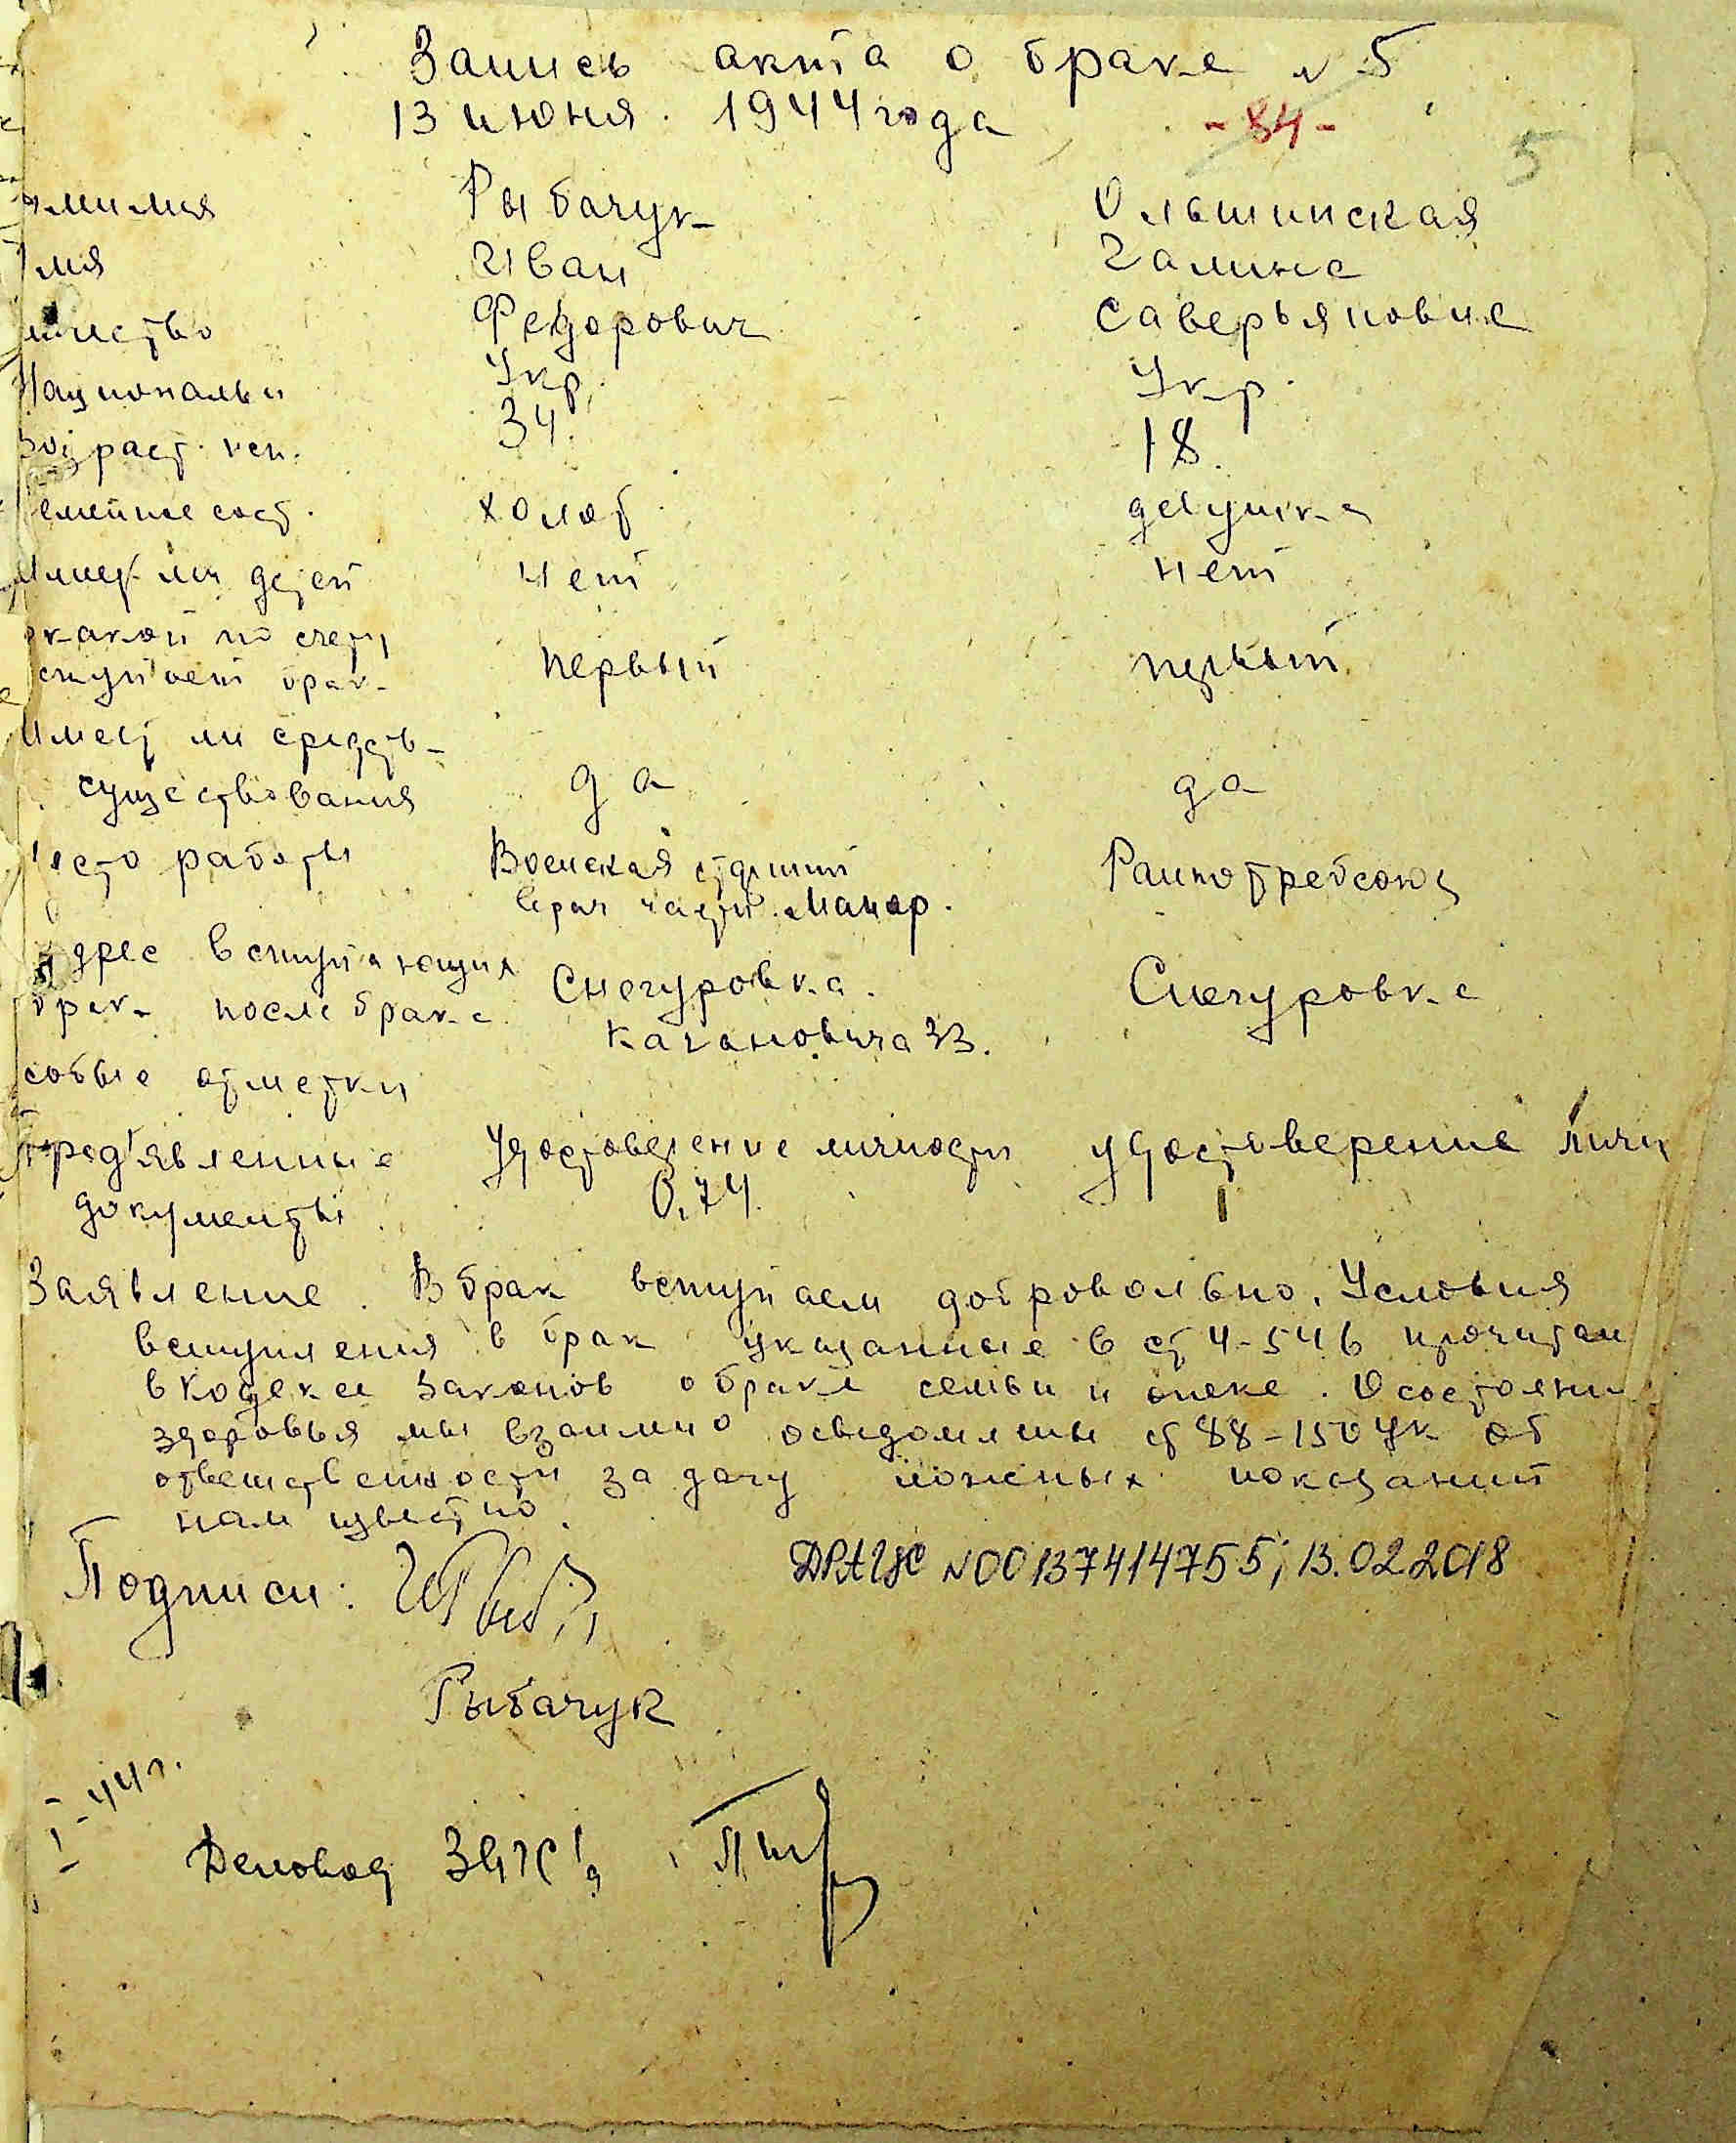 Запись акта о браке N 5
13 июня 1944 года
- 84 -
5
амилия Рыбачук Ольшинская
Имя Иван Галина
чество Федорович Саверьяновна
Национальн Укр. Укр.
Возраст 34. 18.
емейное сост. холост девушка
Имеет ли детей нет нет
в какой по счету
вступает брак первый первый
Имеет ли средств
существования да да
есто работы Воинская Райпотребсоюз
врач части. Майор.
Адрес вступающих Снегуровка. Снегуровка
брак после брака Кагановича 33.
собые отметки
Пред'явленные Удостоверение личности удостоверение личн
документы
Заявление. В брак вступаем добровольно. Условия
вступления в брак указанные в ст 4-5 и 6
в Кодексе Законов о браке семьи и опеке. О состоянии
здоровья мы взаимно осведомлены ст 88-150 УК об
ответственности за дачу ложных показаний
нам известно.
Подписи:
ДРАЦС N00137414755; 13.02.2018
Рыбачук
44 г.
Деловод ЗАГС'а